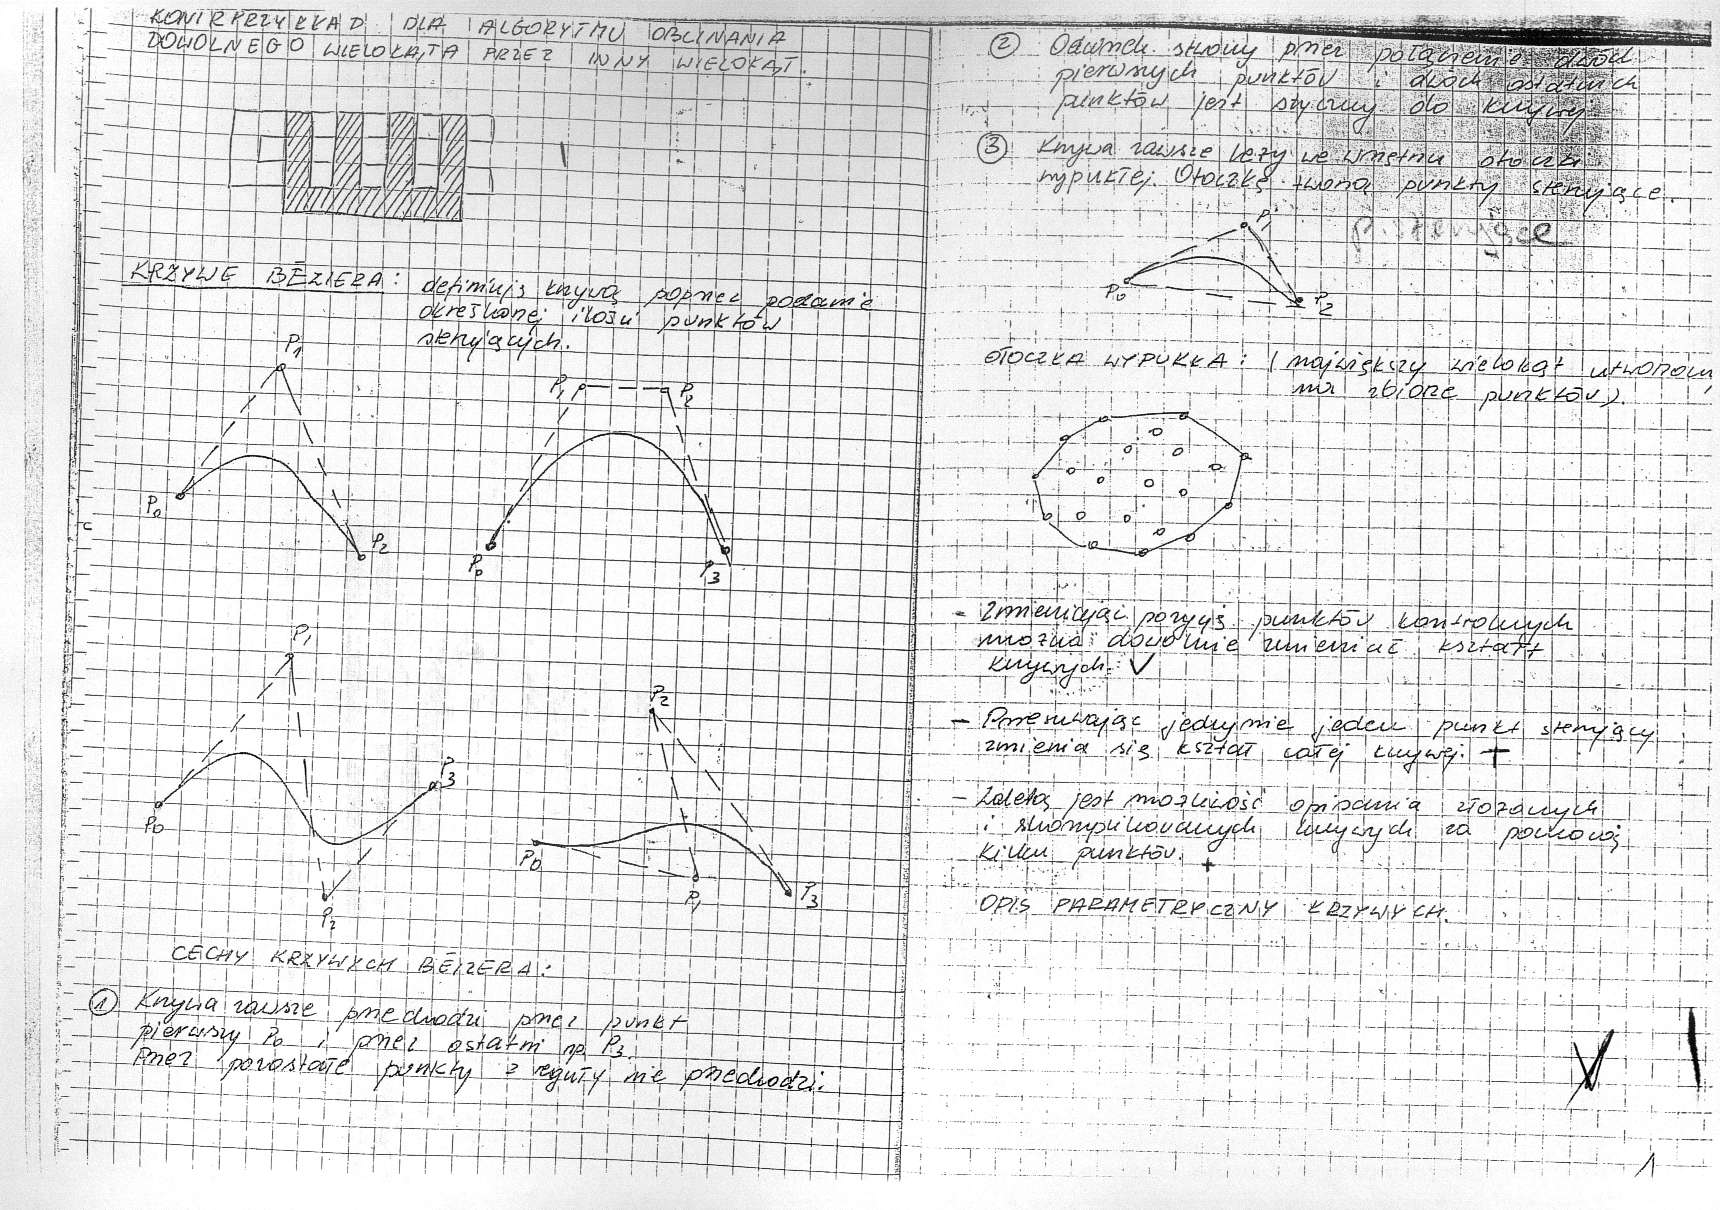 KONTRPRZYKŁAD DLA ALGORYTMU OBCINANIA
DOWOLNEGO WIELOKĄTA PRZEZ INNY WIELOKĄT.
KRZYWE BÉZIERA: definiują krzywą poprzez podanie
określonej ilości punktów
sterujących.
P1
P0
P2
P1 P2
P0
P3
P1
P0
P3
P2
P2
P0
P1
P3
CECHY KRZYWYCH BÉZIERA:
① Krzywa zawsze przechodzi przez punkt
pierwszy P0 i przez ostatni np. P3.
Przez pozostałe punkty z reguły nie przechodzi.
② Odcinek stworzony przez połączenie dwóch
pierwszych punktów i dwóch ostatnich
punktów jest styczny do krzywej
③ Krzywa zawsze leży we wnętrzu otoczki
wypukłej. Otoczkę tworzą punkty sterujące.
p. sterujące
P1
P0
P2
OTOCZKA WYPUKŁA: (największy wielokąt utworzony
na zbiorze punktów).
- Zmieniając pozycję punktów kontrolnych
można dowolnie zmieniać kształt
krzywych. V
- Przesuwając jedynie jeden punkt sterujący
zmienia się kształ całej krzywej. +
- Zaletą jest możliwość opisania złożonych
i skomplikowanych krzywych za pomocą
kilku punktów. +
OPIS PARAMETRYCZNY KRZYWYCH.
V
1